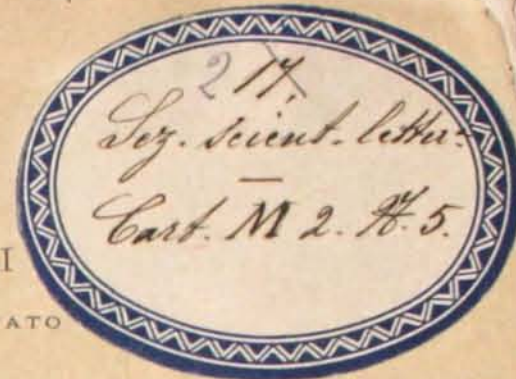 2 17.
Sez. scient. letter.
Cart. M 2. N. 5.
I
ATO